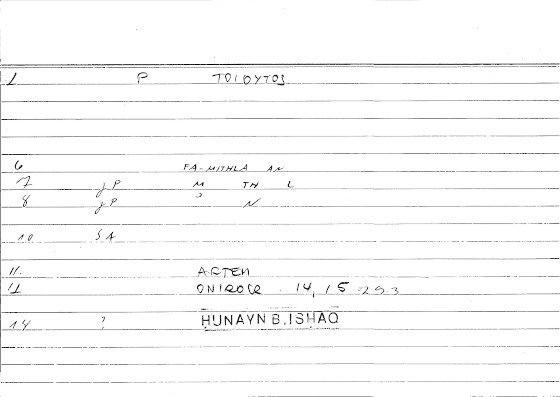 1 P TOIOYTOS
6 FA-MITHLA AN
7 gP M TH L
8 gP ʾ N
10 SA
11. ARTEM
12 ONIROCR 14, 15 293
14 ? HUNAYN B. ISHAQ